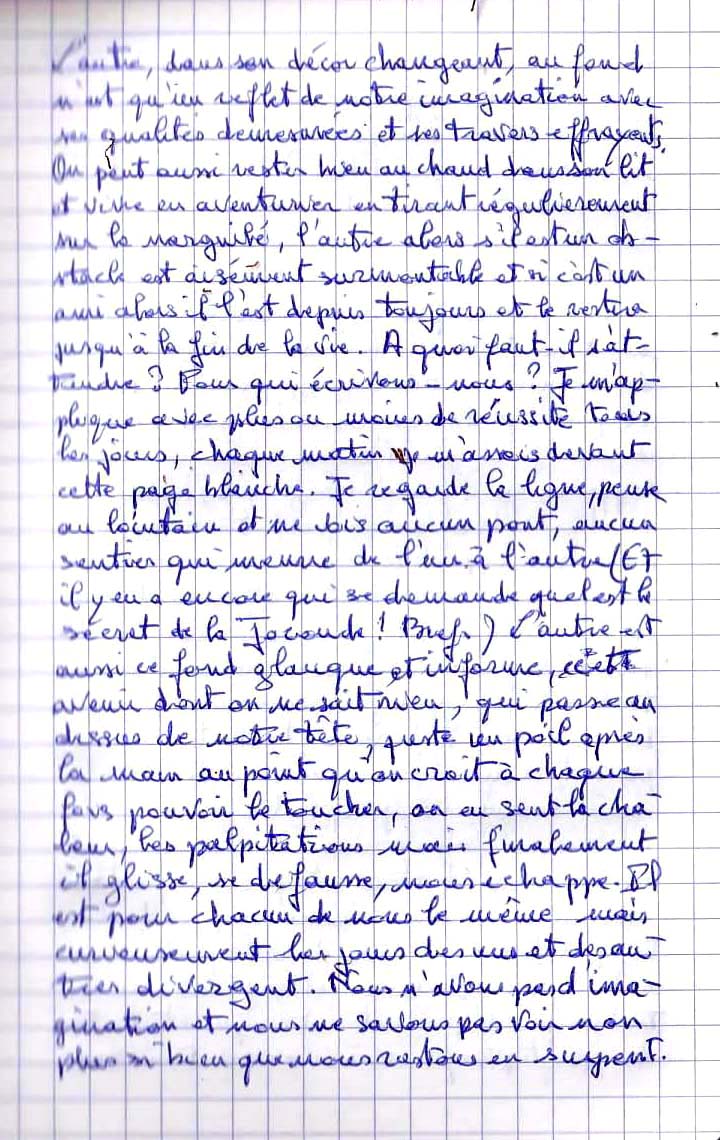 L'autre, dans son décor changeant, au fond
n'est qu'un reflet de notre imagination avec
ses qualités demesurées et ses travers effrayants.
On peut aussi rester bien au chaud dans son lit
et vivre en aventurier en tirant régulièrement
sur le narguilé, l'autre alors s'il est un ob-
stacle est aisément surmontable et si c'est un
ami alors il l'est depuis toujours et le restera
jusqu'à la fin de la vie. A quoi faut-il s'at-
tendre ? Pour qui écrivons-nous ? Je m'ap-
plique avec plus ou moins de réussite tous
les jours, chaque matin je m'assois devant
cette page blanche. Je regarde la ligne, pense
au lointain et ne vois aucun pont, aucun
sentier qui mene de l'un à l'autre (Et
il y en a encore qui se demande quel est le
secret de la Joconde ! Bref.) L'autre est
aussi ce fond glauque et informe, cet
avenir dont on ne sait rien, qui passe au
dessus de notre tête, juste un poil après
la main au point qu'on croit à chaque
fois pouvoir le toucher, on en sent la cha-
leur, les palpitations mais finalement
il glisse, se defausse, nous echappe. Il
est pour chacun de nous le même mais
curieusement les jours des uns et des au-
tres divergent. Nous n'avons pas d'ima-
gination et nous ne savons pas voir non
plus si bien que nous restons en suspent.